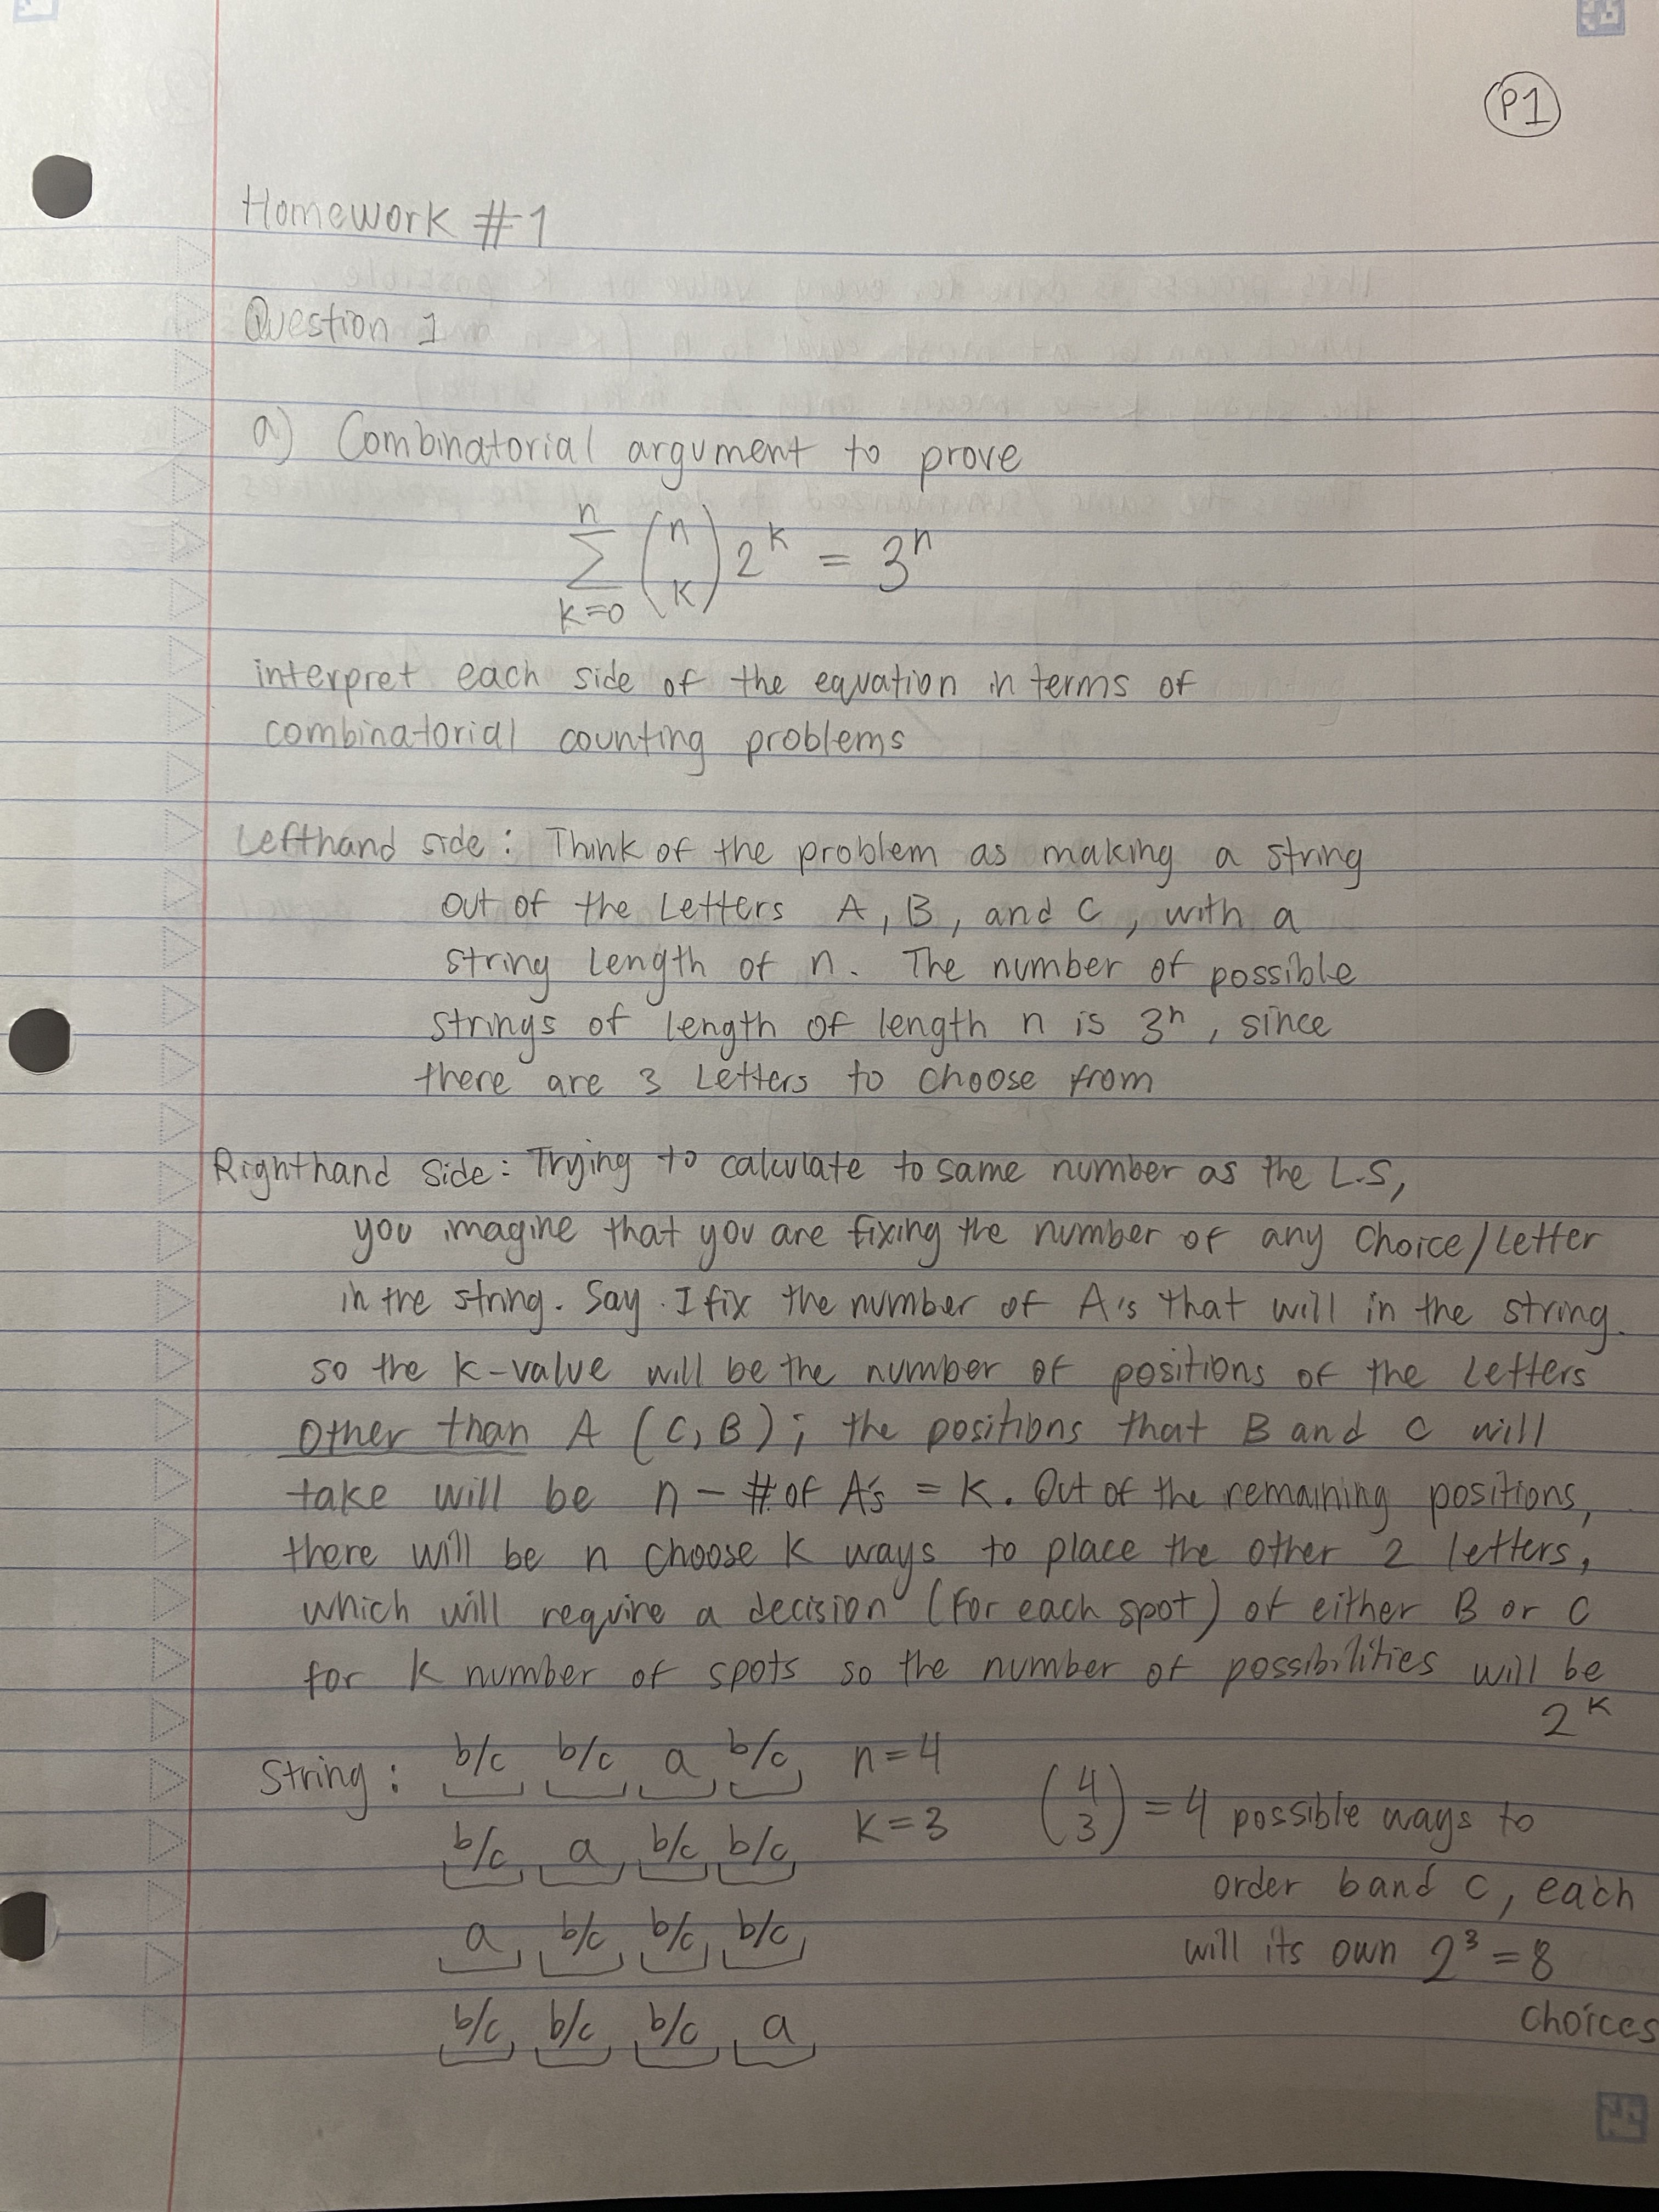 P1
Homework #1
Question 1
a) Combinatorial argument to prove
n
∑ (n k) 2^k = 3^n
k=0
interpret each side of the equation in terms of
combinatorial counting problems
Lefthand side: Think of the problem as making a string
out of the Letters A, B, and C, with a
string Length of n. The number of possible
strings of length of length n is 3^n, since
there are 3 Letters to choose from
Righthand Side: Trying to calculate to same number as the L.S,
you imagine that you are fixing the number of any Choice/Letter
in the string. Say I fix the number of A's that will in the string.
so the k-value will be the number of positions of the Letters
other than A (C, B); the positions that B and C will
take will be n - # of A's = k. Out of the remaining positions,
there will be n choose k ways to place the other 2 letters,
which will require a decision (for each spot) of either B or C
for k number of spots so the number of possibilities will be
2^k
String: b/c b/c a b/c n=4
b/c a b/c b/c k=3 (4 3) = 4 possible ways to
order b and c, each
a b/c b/c b/c will its own 2^3 = 8
b/c b/c b/c a choices